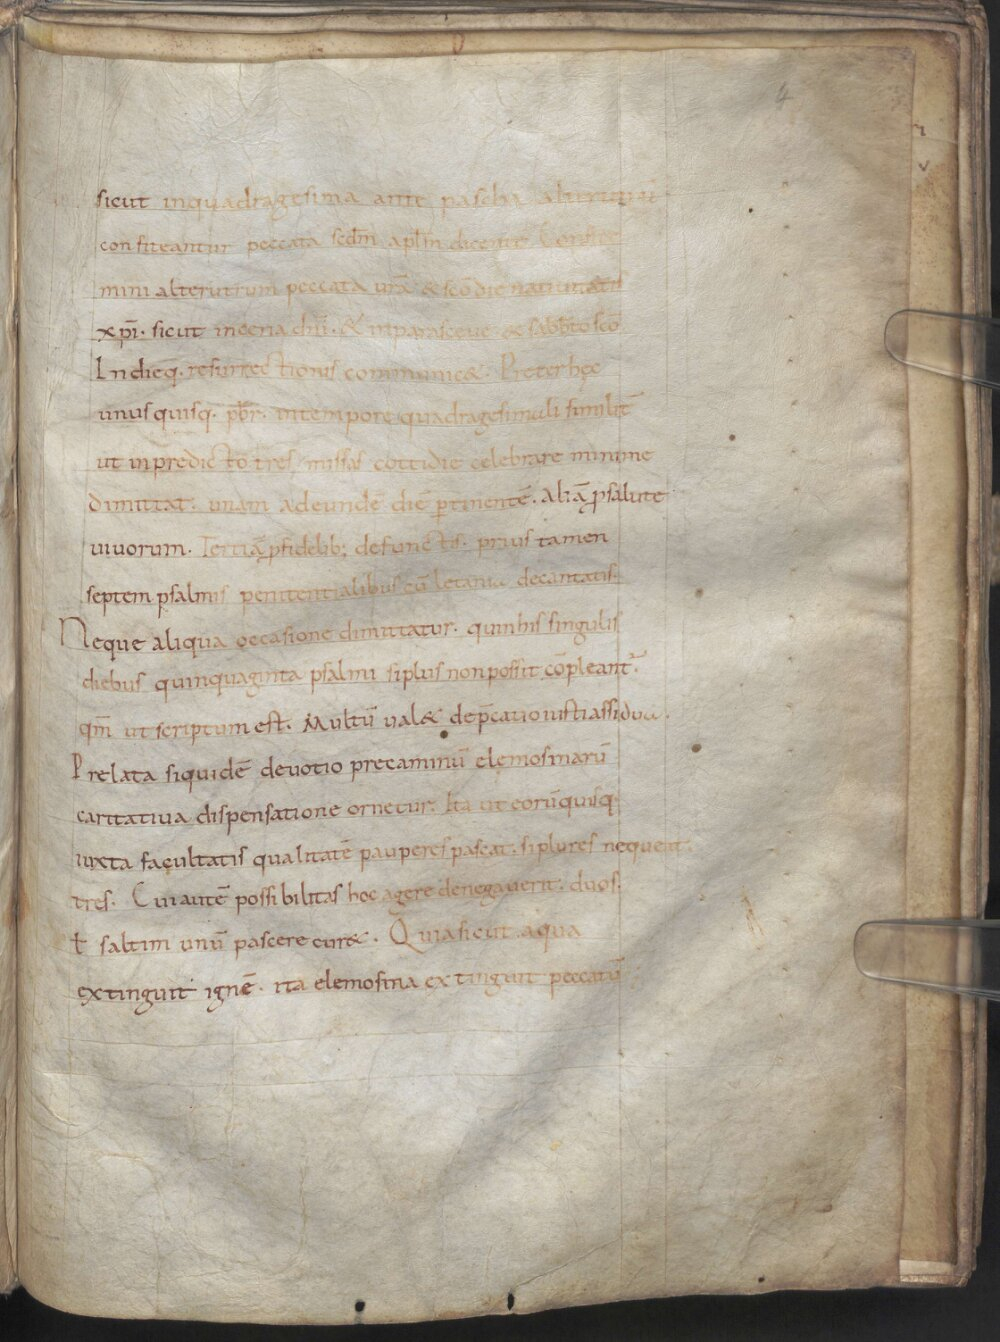 4
sicut inquadragesima ante pascha alterutrū
confiteantur peccata scdm̄ aplm̄ dicentē. Confite
mini alterutrum peccata urā. & scō die natiuitatis
xp̄i. sicut incena dn̄i. & inparasceue & sabbto scō
Indieq. resurrectionis communic&. Preter hęc
unusquisq. pbr̄. intempore quadragesimali similit̄
ut inpredicto tres missas cottidie celebrare minime
dimittat. unam adeundē diē ptinentē. aliā psalute
uiuorum. Tertiā pfidelib; defunctis. prius tamen
septem psalmis penitentialibus cū letania decantatis.
Neque aliqua occasione dimittatur. quinhis singulis
diebus quinquaginta psalmi siplus nonpossit cōpleant̄.
qm̄ ut scriptum est. Multū ual& dep̄catio iusti assidua.
Prelata siquidē deuotio precaminū elemosinarū
caritatiua dispensatione ornetur. Ita ut eorūquisq.
iuxta facultatis qualitatē pauperes pascat. siplures nequeat.
tres. Cui autē possibilitas hoc agere denegauerit. duos.
ł saltim unū pascere cur&. Quia sicut aqua
extinguit ignē. ita elemosina extinguit peccatū